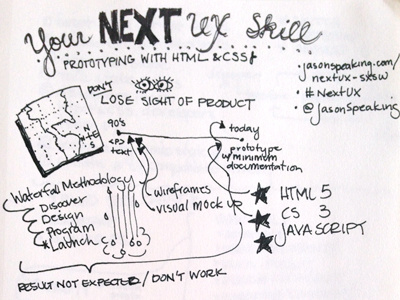 Your NEXT UX Skill
PROTOTYPING WITH HTML & CSS!
• jasonspeaking.com/
nextux-sxsw
• # NextUX
• @jasonspeaking
DON'T
LOSE SIGHT OF PRODUCT
90's
<P>
text
today
prototype
w/minimum
documentation
wireframes
visual mock up
Waterfall Methodology
Discover
Design
Program
Launch
HTML 5
CS 3
JAVASCRIPT
RESULT NOT EXPECTED / DON'T WORK